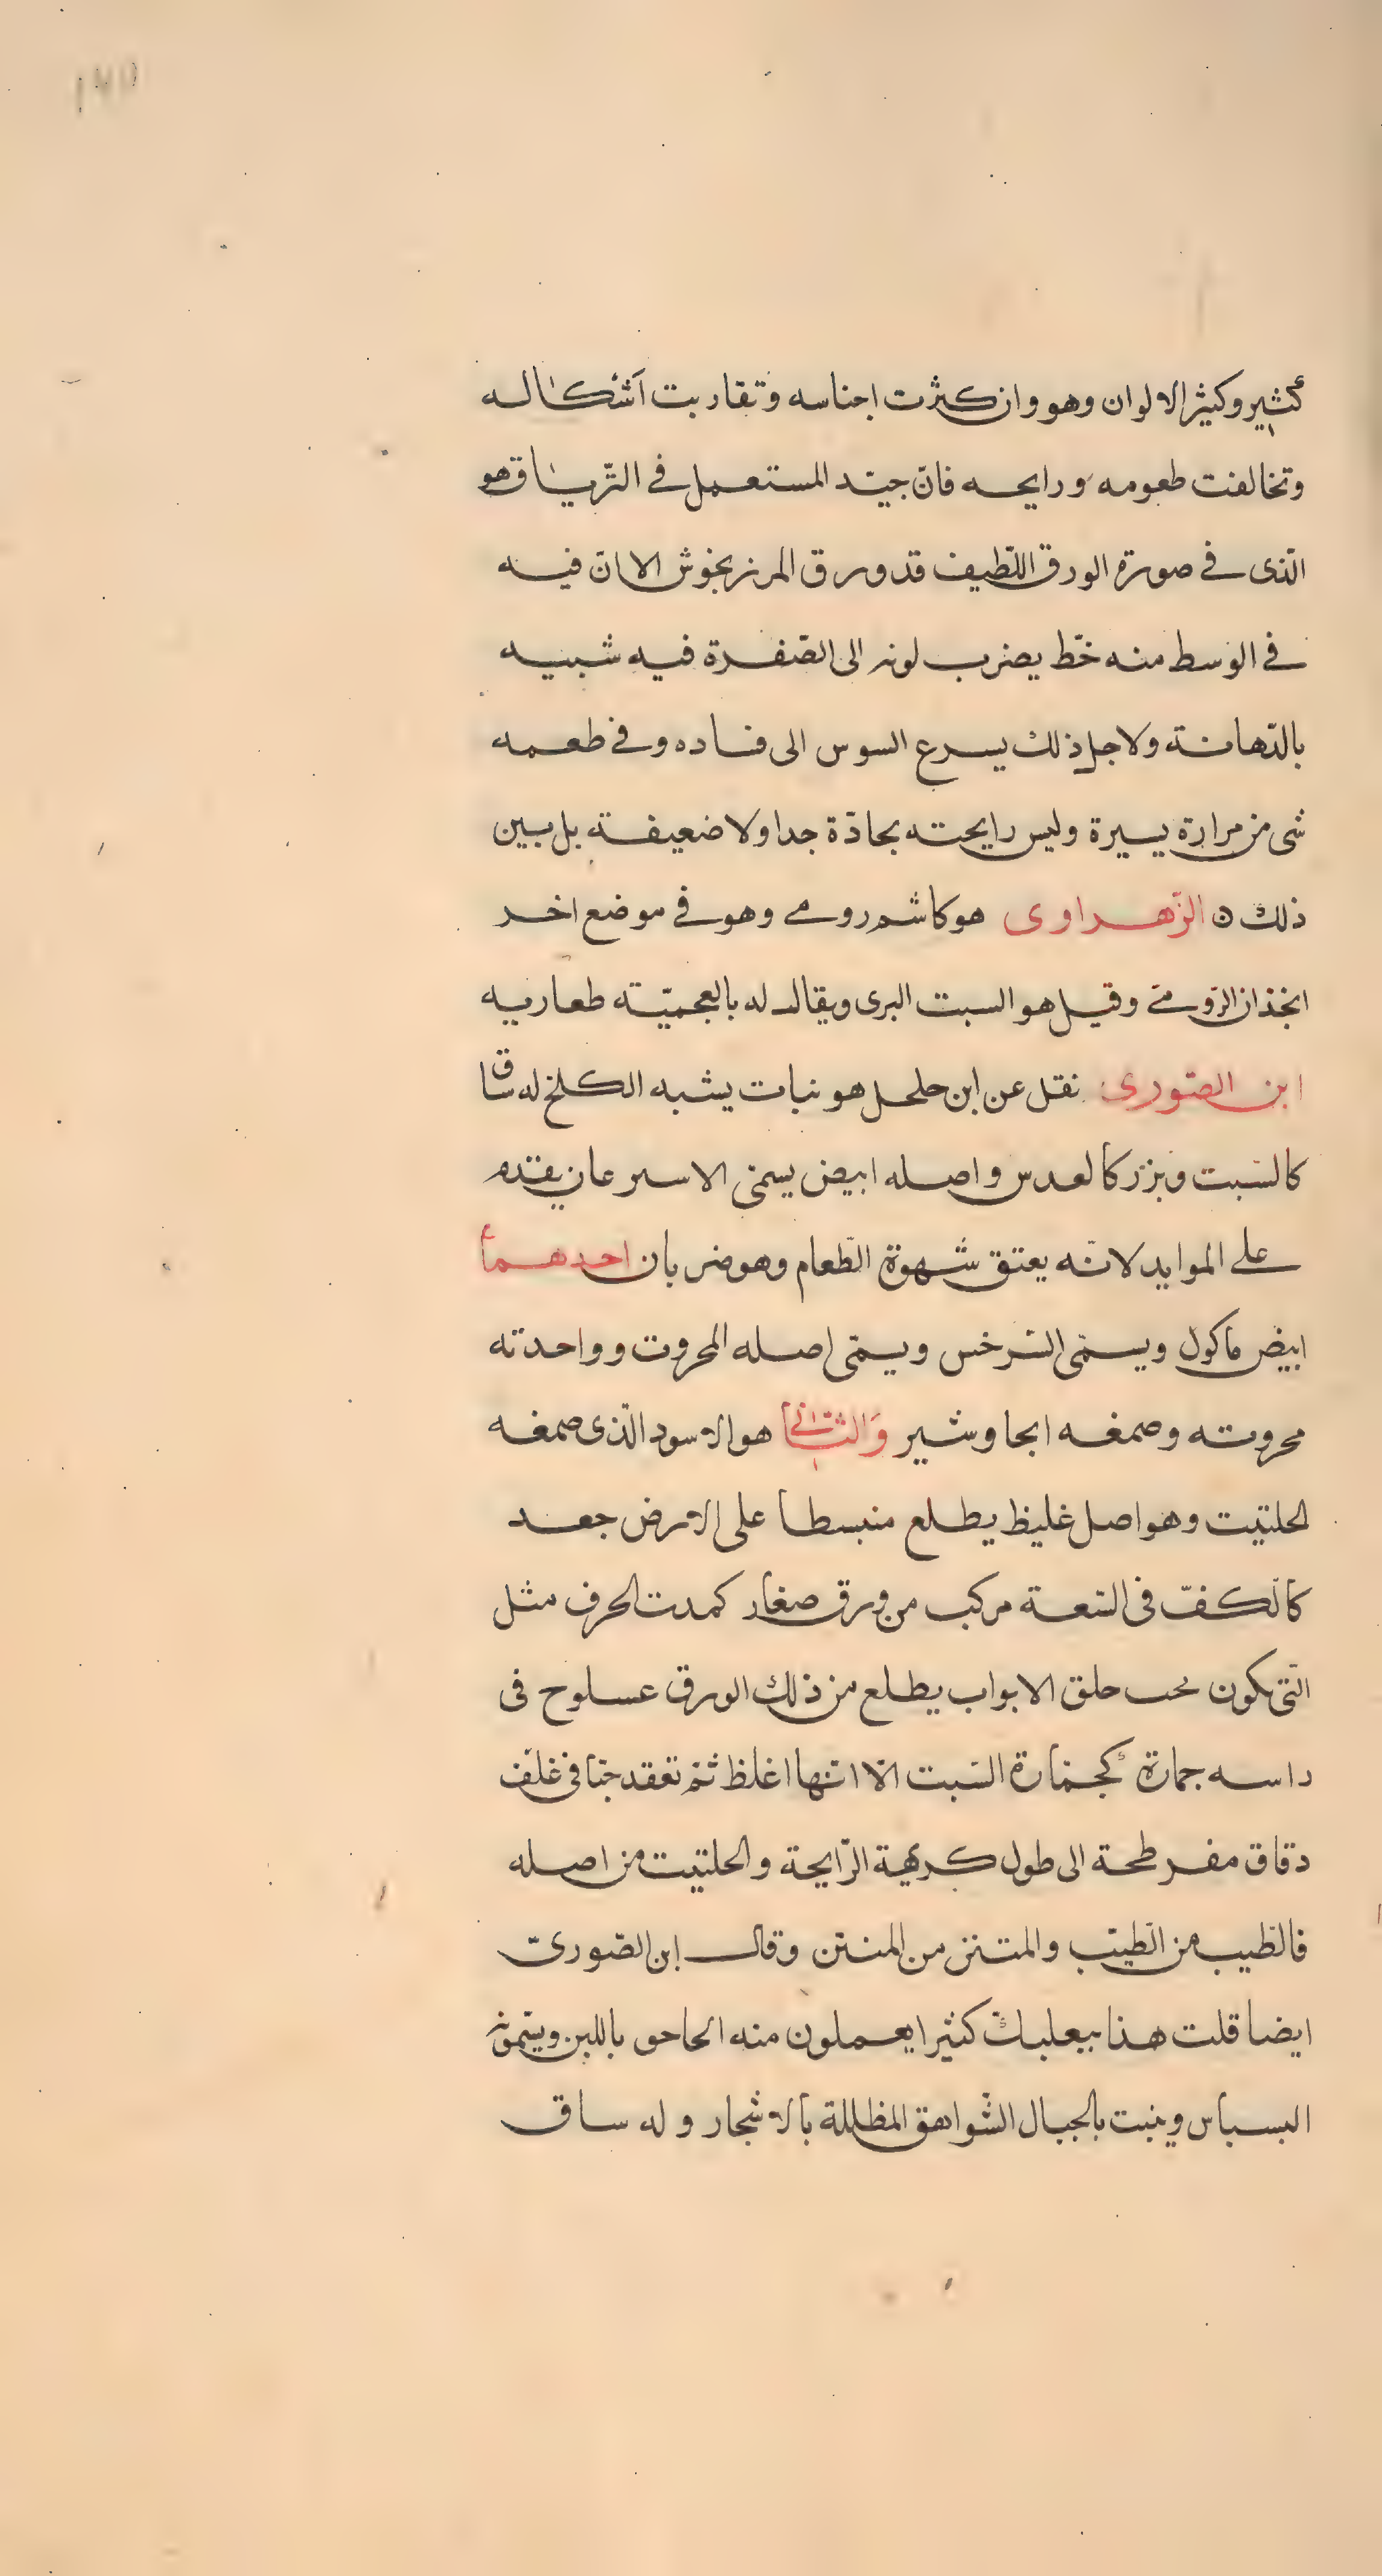 كثير وكثير الالوان وهو وان كثرت اجناسه وتقاربت اشكاله
وتخالفت طعومه ورايحه فانّ جيّد المستعمل في التّرياق هو
الّذى في صورة الورق اللّطيف قد ورق المرزنجوش الا انّ فيه
في الوسط منه خطّ يضرب لونه الى الصّفرة فيه شبيه
بالدّهانة ولاجل ذلك يسرع السوس الى فساده وفي طعمه
شى من مرارة يسيرة وليس رايحته بحادّة جدا ولا ضعيفة بل بين
ذلك ن الزّهراوى هو كاشم رومي وهو في موضع اخر
انجذان الرّومي وقيل هو السبت البرى ويقال له بالعجميّة طعاريه
ابن الصّورى نقل عن ابن جلجل هو نبات يشبه الكلخ له ساق
كالشبت وبزر كالعدس واصله ابيض يسمى الاسترعاز يقدم
على الموايد لانّه يعتق شهوة الطّعام وهو ضربان احدهما
ابيض ماكول ويسمّى السّرخس ويسمّى اصله المحروت وواحدته
محروته وصمغه ابحاوشير والثّاني هو الاسود الّذى صمغه
الحلتيت وهو اصل غليظ يطلع منبسطا على الارض جعد
كالكفّ فى السّعة مركب من ورق صغار كمدت الحرف مثل
الّتى تكون تحت حلق الابواب يطلع من ذلك الورق عسلوج فى
راسه جمارة كجمّارة الشبت الّا انّها اغلظ ثمّ تعقد حبّا في غلف
دقاق مفرطحة الى طول كريهة الرّايحة والحلتيت من اصله
فالطّيب من الطّيّب والمنتن من المنتن وقال ابن الصّورىّ
ايضا قلت هذا ببعلبك كثيرا يعملون منه الحاحق باللبن ويسّمونه
البسباس وينبت بالجبال الشّواهق المظللة بالاشجار وله ساق